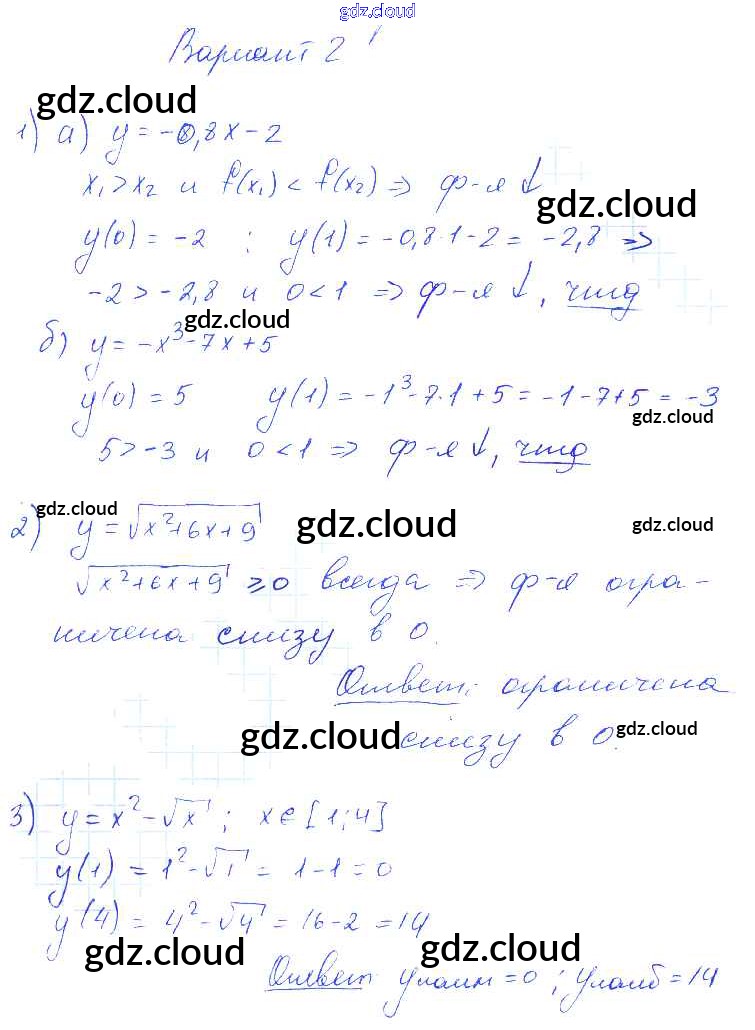 gdz.cloud
Вариант 2
gdz.cloud
1) а) y = -0,8x - 2
x₁ > x₂ и f(x₁) < f(x₂) => ф-я ↓
gdz.cloud
y(0) = -2 ; y(1) = -0,8·1 - 2 = -2,8 =>
-2 > -2,8 и 0 < 1 => ф-я ↓, чтд
gdz.cloud
б) y = -x³ - 7x + 5
y(0) = 5 y(1) = -1³ - 7·1 + 5 = -1 - 7 + 5 = -3
gdz.cloud
5 > -3 и 0 < 1 => ф-я ↓, чтд
gdz.cloud
2) y = √(x² + 6x + 9)
gdz.cloud gdz.cloud
√(x² + 6x + 9) ≥ 0 всегда => ф-я огра-
ничена снизу в 0.
Ответ: ограничена
снизу в 0.
gdz.cloud gdz.cloud
3) y = x² - √x ; x ∈ [1; 4]
y(1) = 1² - √1 = 1 - 1 = 0
y(4) = 4² - √4 = 16 - 2 = 14
gdz.cloud gdz.cloud
Ответ: yнаим = 0 ; yнаиб = 14